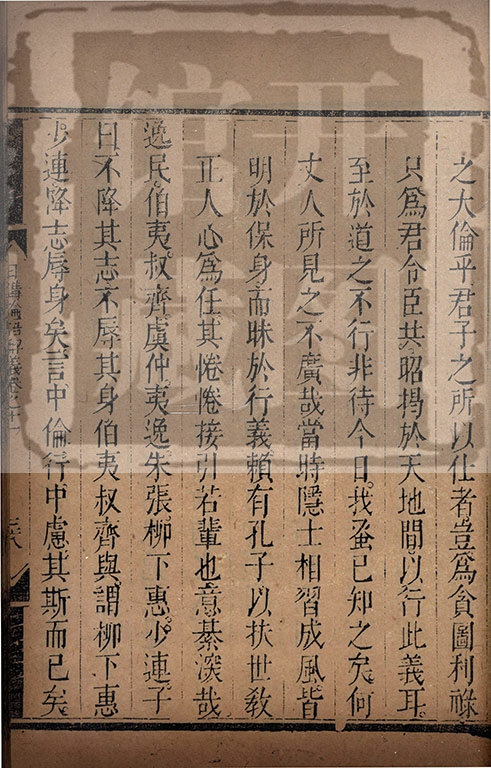 之大倫乎君子之所以仕者豈爲貪圖利祿
只爲君令臣共昭揭於天地間以行此義耳
至於道之不行非待今日我蚤已知之矣何
丈人所見之不廣哉當時隱士相習成風皆
明於保身而昧於行義賴有孔子以扶世敎
正人心爲任其惓惓接引若輩也意綦深哉
逸民伯夷叔齊虞仲夷逸朱張柳下惠少連子
曰不降其志不辱其身伯夷叔齊與謂柳下惠
少連降志辱身矣言中倫行中慮其斯而已矣
開
圖